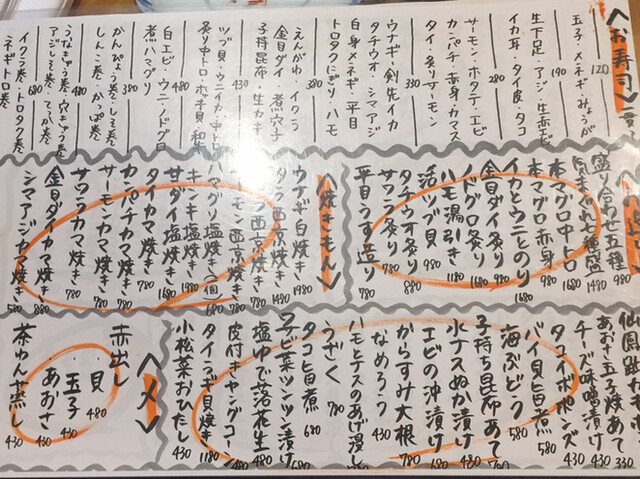 お寿司 一貫
120
玉子・メネギ・みょうが
190
生下足・アジ・生赤エビ
イカ耳・タイ皮・タコ
280
サーモン・ホタテ・エビ
カンパチ・赤身・カマス
タイ・炙りサーモン
330
ウナギ・剣先イカ
タチウオ・シマアジ
白身メネギ・平目
トロタクにぎり・ハモ
380
えんがわ・イクラ
金目ダイ・煮穴子
子持昆布・生カキ
430
ツブ貝・ウニイカ・中トロ
炙り中トロ・ホッキ貝・和牛
480
白エビ・ウニ・ノドグロ
煮ハマグリ
380
かんぴょう巻・しそ巻
しんこ巻・かっぱ巻
480
うなきゅう巻・穴きゅう巻
アジしそ巻・てっか巻
680
イクラ巻・トロタク巻
ネギトロ巻
盛り合わせ五種 980
七種盛 1480
本マグロ中トロ 1680
本マグロ赤身 980
イカとウニとのり 1680
金目ダイ炙り 980
ノドグロ炙り 1680
ハモ湯引き 1180
活ツブ貝 980
タチウオ炙り 880
サワラ炙り 780
平目うす造り 980
焼きもん
ウナギ白焼き 1980
西京焼き 1480
西京焼き 780
ハマグリ塩焼き(一個) 680
キンキ塩焼き 1980
甘ダイ塩焼き 1680
タイカマ焼き 780
カンパチカマ焼き 780
サーモンカマ焼き 780
サワラカマ焼き 780
金目ダイカマ焼き 880
シマアジカマ焼き 580
あおさ玉子焼あて 330
チーズ味噌漬け 430
タコイカポンズ 430
バイ貝旨煮 580
海ぶどう 580
子持ち昆布あて 780
水ナスぬか漬け 480
エビの沖漬け 680
からすみ大根 780
なめろう 430
ハモとナスのあげ浸し
うざく 780
タコ旨煮 680
子ビ菜ツンツン漬け
塩ゆで落花生 480
皮付きヤングコーン 480
タイラギ貝焼き 1180
小松菜おひたし 430
〆
赤出し
・貝 480
・玉子 430
・あおさ 430
茶わん蒸し 430